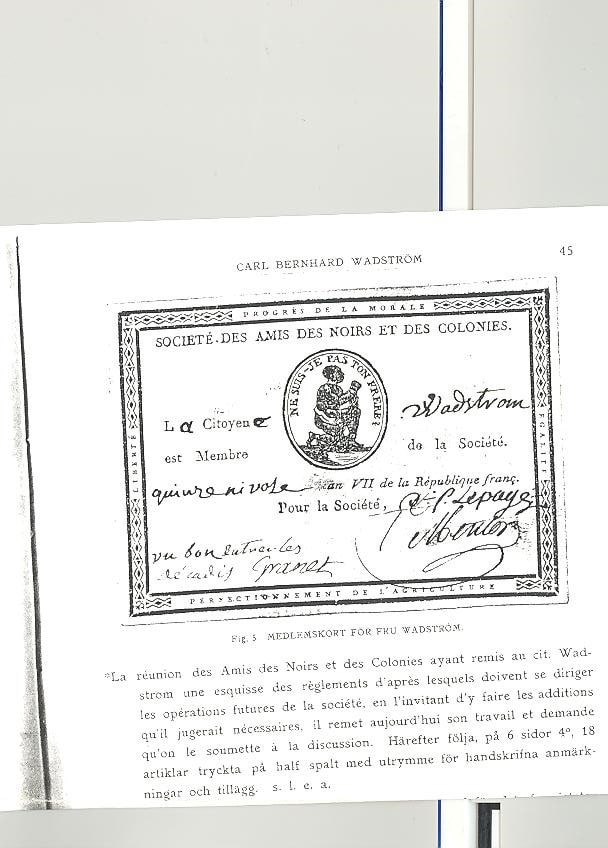 CARL BERNHARD WADSTRÖM
45
PROGRÈS DE LA MORALE
SOCIETÉ.DES AMIS DES NOIRS ET DES COLONIES.
NE SUIS-JE PAS TON FRERE?
LIBERTÉ
EGALITÉ
La Citoyene Wadstrom
est Membre de la Société.
quinze nivose an VII de la République franç.
Pour la Société, Lepage
vu bon
décadis Granet
PERFECTIONNEMENT DE L'AGRICULTURE
Fig. 5 MEDLEMSKORT FÖR FRU WADSTRÖM.
*La réunion des Amis des Noirs et des Colonies ayant remis au cit. Wad-
strom une esquisse des règlements d'après lesquels doivent se diriger
les opérations futures de la société, en l'invitant d'y faire les additions
qu'il jugerait nécessaires, il remet aujourd'hui son travail et demande
qu'on le soumette à la discussion. Härefter följa, på 6 sidor 4°, 18
artiklar tryckta på half spalt med utrymme för handskrifna anmärk-
ningar och tillägg. s. l. e. a.